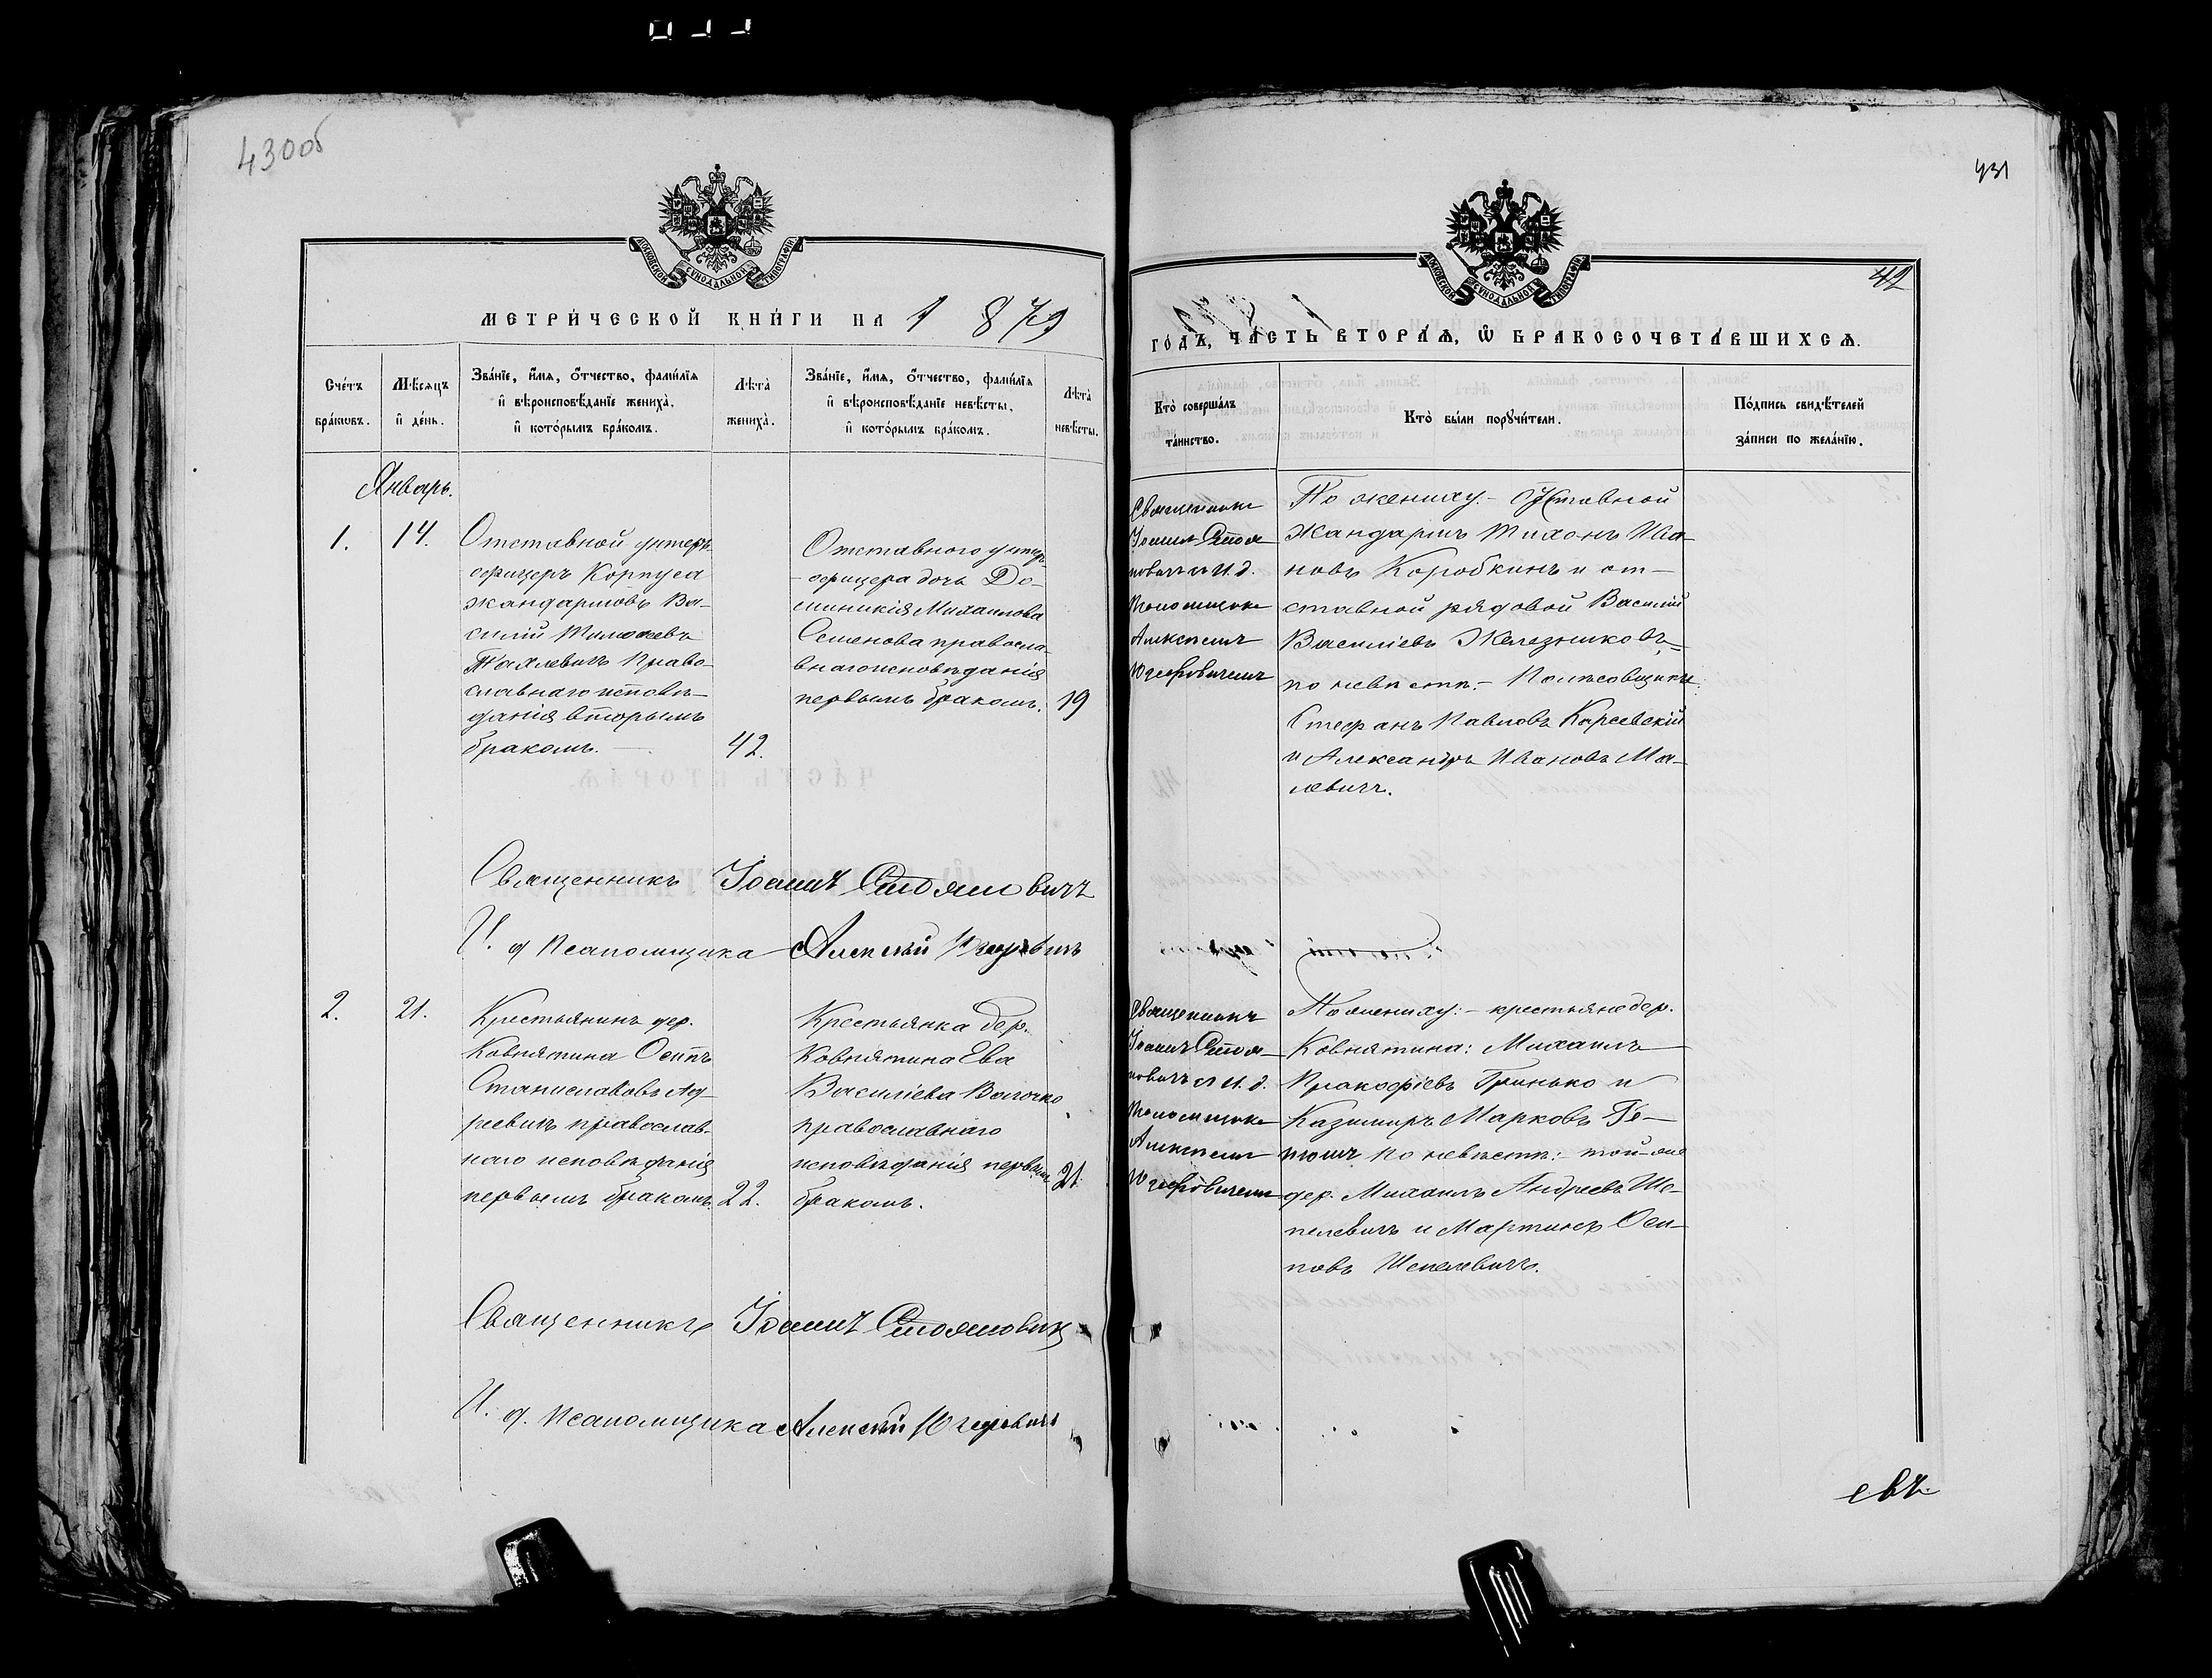 430об
431
42
МОСКОВСКОЙ СѴНОДАЛЬНОЙ ТИПОГРАФІИ
МОСКОВСКОЙ СѴНОДАЛЬНОЙ ТИПОГРАФІИ
МЕТРИ́ЧЕСКОЙ КНИ́ГИ НА 1879
ГО́ДЪ, ЧА́СТЬ ВТОРА́Ѧ, Ѽ БРАКОСОЧЕТА́ВШИХСѦ.
Сче́тъ бра́кѡвъ.
Мѣ́сѧцъ и҆ де́нь.
Зва́нїе, и҆́мѧ, ѻ҆́тчество, фами́лїѧ
и҆ вѣроисповѣ́данїе жениха̀,
и҆ кото́рымъ бра́комъ.
Лѣ̀та жениха̀.
Зва́нїе, и҆́мѧ, ѻ҆́тчество, фами́лїѧ
и҆ вѣроисповѣ́данїе невѣ́сты,
и҆ кото́рымъ бра́комъ.
Лѣ̀та невѣ́сты.
Кто̀ соверша́лъ та́инство.
Кто̀ бы́ли порꙋчи́тели.
По́дпись свидѣ́телей
за́писи по жела́нїю.
Январь.
1.
14.
Отставной унтеръ
офицеръ Корпуса
жандармовъ Ва-
силій Тимофеевъ
православнаго исповѣ-
данія вторымъ
бракомъ.
42.
Отставного унтеръ
-офицера дочь До-
миникія Михаилова
Семенова правосла-
внаго исповѣданія
первымъ бракомъ.
19
Священникъ
Іоаннъ Стоя
новичъ съ И. д.
Псаломщика
Алексѣемъ
По жениху:- Отставной
Жандармъ Тихонъ Ива-
новъ Коробкинъ и от-
ставной рядовой Василій
Василіевъ Железниковъ,=
по невѣстѣ:- Полѣсовщики:
Стефанъ Павловъ Карсевскій
и Александръ Ивановъ Ма-
левичъ.
Священникъ Іоаннъ Стояновичъ
И. д Псаломщика Алексѣй
2.
21.
Крестьянинъ дер.
Ковнятина Осипъ
Станиславовъ Ад-
реевичъ православ-
наго исповѣданія
первымъ бракомъ.
22.
Крестьянка дер.
Ковнятина Ева
Василіева Волочко
православнаго
исповѣданія первымъ
бракомъ.
21.
Священникъ
Іоаннъ Стоя-
новичъ съ И. д.
Псаломщика
Алексѣемъ
По жениху:- крестьяне дер.
Ковнятина: Михаилъ
Прокофіевъ Гринько и
Казимиръ Марковъ Ге-
по невѣстѣ: той-же
дер. Михаилъ Андреевъ Ше-
пелевичъ и Мартинъ Оси-
повъ Шепелевичъ.
Священникъ Іоаннъ Стояновичъ
И. д. Псаломщика Алексѣй